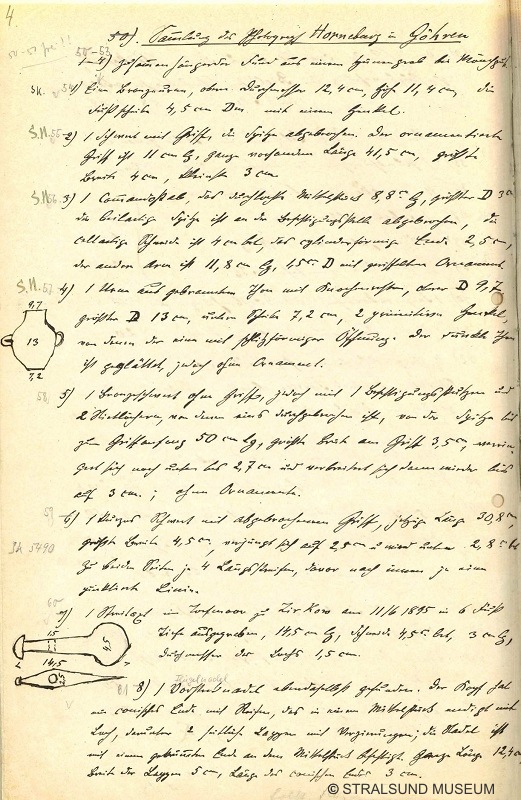 4.
50). Sammlung des Photograph Horneburg in Göhren
50-53
1-4) zusammenhängender Fund aus einem Hünengrab bei
54) 1) Eine Bronzeurne, ober. Durchmesser 12,4 cm, Höh 11,4 cm, die
Fußscheibe 4,5 cm Dm. mit einem Henkel.
S.N. 55 2) 1 Schwert mit Griff, die Spitze abgebrochen. Der ornamentierte
Griff ist 11 cm lg, ganze vorhandene Länge 41,5 cm, größte
Breite 4 cm, kleinste 3 cm.
S.N. 56. 3) 1 Commandostab, das Mittelstück 8,8 cm lg, größter D 3 cm
die beilartige Spitze ist an der Befestigungsstelle abgebrochen, die
celtartige Schneide ist 4 cm brt, das cylinderförmige Ende 2,5 cm,
der andere Arm ist 11,8 cm lg, 1,5 cm D mit Ornament.
S.N. 57. 4) 1 Urne aus gebranntem Thon mit Knochenresten, oberer D 9,7
größter D 13 cm, untere Scheibe 7,2 cm, 2 Henkel,
von denen der eine mit Öffnung. Der Thon
ist geglättet, jedoch ohne Ornament.
9,7
13
7,2
58. 5) 1 Bronzeschwert ohne Griff, jedoch mit 1 Befestigungs und
2 Nietlöchern, von denen eins durchgebrochen ist, von der Spitze bis
zum Griffanfang 50 cm lg, größte Breite am Griff 3,5 cm, verrin-
gert sich nach unten bis 2,7 cm und verbreitert sich dann wieder bis
auf 3 cm.; ohne Ornamente.
59 6) 1 kurzes Schwert mit abgebrochenem Griff, jetzige Länge 30,8 cm,
größte Breite 4,5 cm, verjüngt sich auf 2,5 cm u wird unten 2,8 cm brt
Zu beiden Seiten je 4 Längsstreifen, davor nach innen je eine
punktierte Linie.
5490
60 7) 1 Streitaxt im Torfmoor zu Zirkow am 11/6 1895 in 6 Fuß
Tiefe ausgegraben, 14,5 cm lg, Schneide 4,5 cm brt, 3 cm lg,
Durchmesser des Lochs 1,5 cm.
15
4,5
14,5
61 8) 1 Vorstecknadel ebendaselbst gefunden. Der Kopf hat
ein conisches Ende mit Reifen, das in einem Mittelstück endigt mit
Loch, darunter 2 seitliche Lappen mit Verzierungen; die Nadel ist
mit einem gekrümmten Ende an dem Mittelstück befestigt. Ganze Länge 12,4 cm
Breite der Lappen 5 cm, Länge des conischen Endes 3 cm.
© STRALSUND MUSEUM